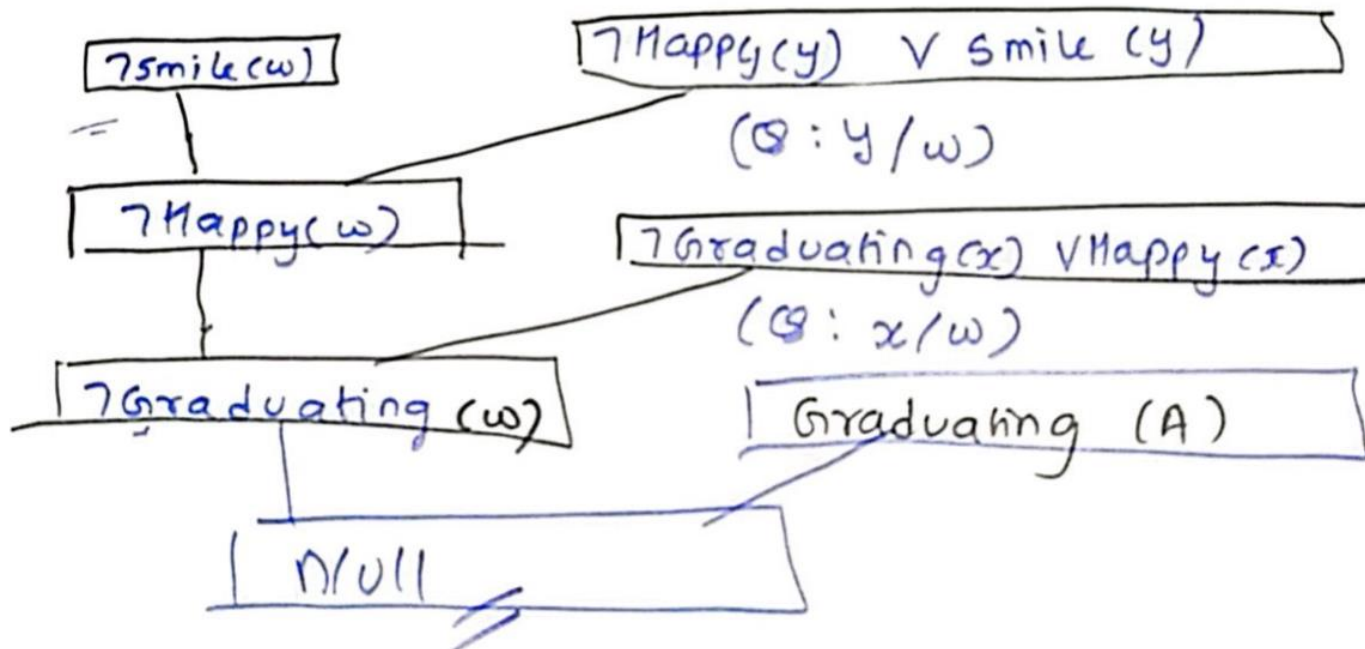 ¬smile(w)
¬Happy(y) V Smile (y)
(θ : y/w)
¬Happy(w)
¬Graduating(x) VHappy(x)
(θ : x/w)
¬Graduating (w)
Graduating (A)
Null